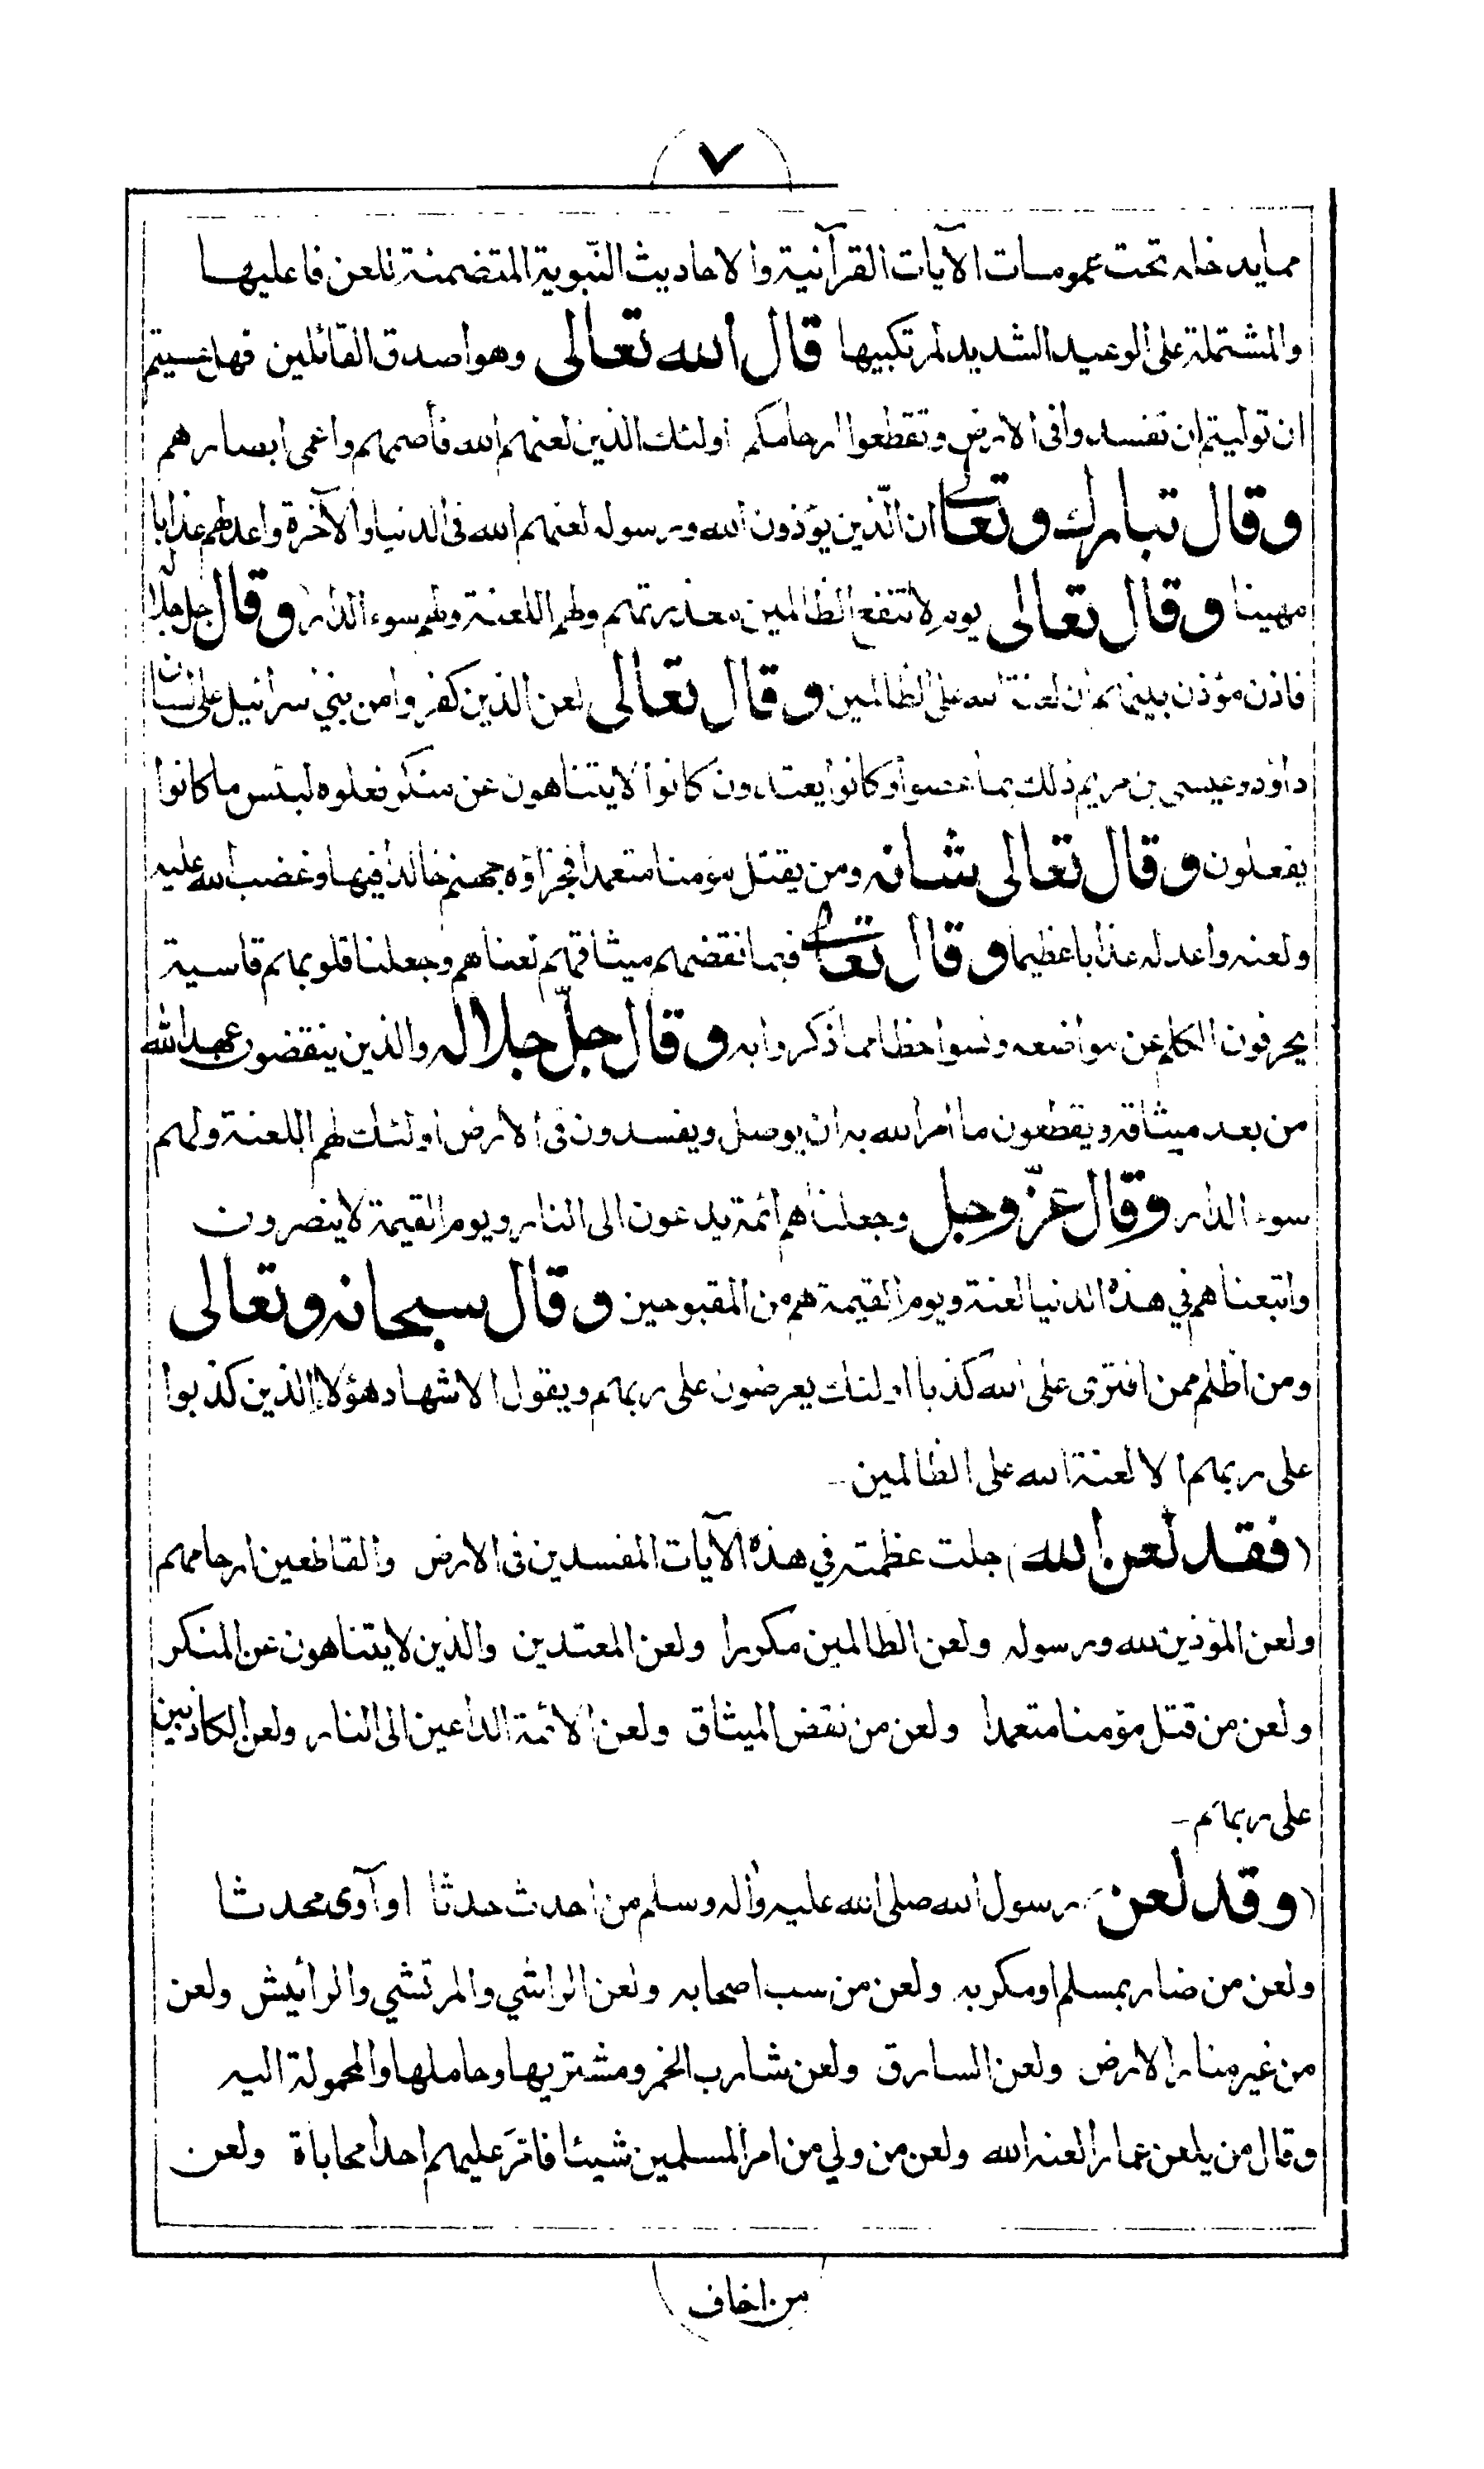 ٧
مما يدخله تحت عمومات الآيات القرآنية والاحاديث النبوية المتضمنة للعن فاعليها
والمشتملة على الوعيد الشديد لمرتكبيها قال الله تعالى وهو اصدق القائلين فهل عسيتم
ان توليتم ان تفسدوا فى الارض وتقطعوا ارحامكم اولئك الذين لعنهم الله فأصمهم واعمى ابصارهم
وقال تبارك وتعالى ان الّذين يؤذون الله ورسوله لعنهم الله فى الدنيا والآخرة واعد لهم عذابا
مهينا وقال تعالى يوم لا تنفع الظالمين معذرتهم ولهم اللعنة ولهم سوء الدار وقال جل جلاله
فاذن مؤذن بينهم ان لعنة الله على الظالمين وقال تعالى لعن الذين كفروا من بني اسرائيل على لسان
داؤد وعيسى بن مريم ذلك بما عصوا وكانوا يعتدون كانوا لا يتناهون عن منكر فعلوه لبئس ما كانوا
يفعلون وقال تعالى شانه ومن يقتل مؤمنا متعمدا فجزاؤه جهنم خالدا فيها وغضب الله عليه
ولعنه واعد له عذابا عظيما وقال تعالى فبما نقضهم ميثاقهم لعناهم وجعلنا قلوبهم قاسية
يحرفون الكلم عن مواضعه ونسوا حظا مما ذكروا به وقال جلّ جلاله والذين ينقضون عهد الله
من بعد ميثاقه ويقطعون ما امر الله به ان يوصل ويفسدون فى الارض اولئك لهم اللعنة ولهم
سوء الدار وقال عزّ وجل وجعلناهم ائمة يدعون الى النار ويوم القيمة لا ينصرون
واتبعناهم في هذه الدنيا لعنة ويوم القيمة هم من المقبوحين وقال سبحانه وتعالى
ومن اظلم ممن افترى على الله كذبا اولئك يعرضون على ربهم ويقول الاشهاد هؤلاء الذين كذبوا
على ربهم الا لعنة الله على الظالمين -
(فقد لعن الله) جلت عظمته في هذه الآيات المفسدين فى الارض والقاطعين ارحامهم
ولعن المؤذين لله ورسوله ولعن الظالمين مكررا ولعن المعتدين والذين لا يتناهون عن المنكر
ولعن من قتل مؤمنا متعمدا ولعن من نقض الميثاق ولعن الائمة الداعين الى النار ولعن الكاذبين
على ربهم -
(وقد لعن) رسول الله صلى الله عليه وآله وسلم من احدث حدثا او آوى محدثا
ولعن من ضار بمسلم او مكر به ولعن من سب اصحابه ولعن الراشي والمرتشي والرائيش ولعن
من غير منار الارض ولعن السارق ولعن شارب الخمر ومشتريها وحاملها والمحمولة اليه
وقال من يلعن عمارا لعنه الله ولعن من ولي من امر المسلمين شيئا فاتر عليهم احدا محاباة ولعن
من اخاف